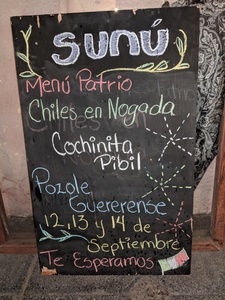 sunú
Menú Patrio
Chiles en Nogada
Cochinita
Pibil
Pozole
Guererense
12, 13 y 14 de
Septiembre
Te Esperamos